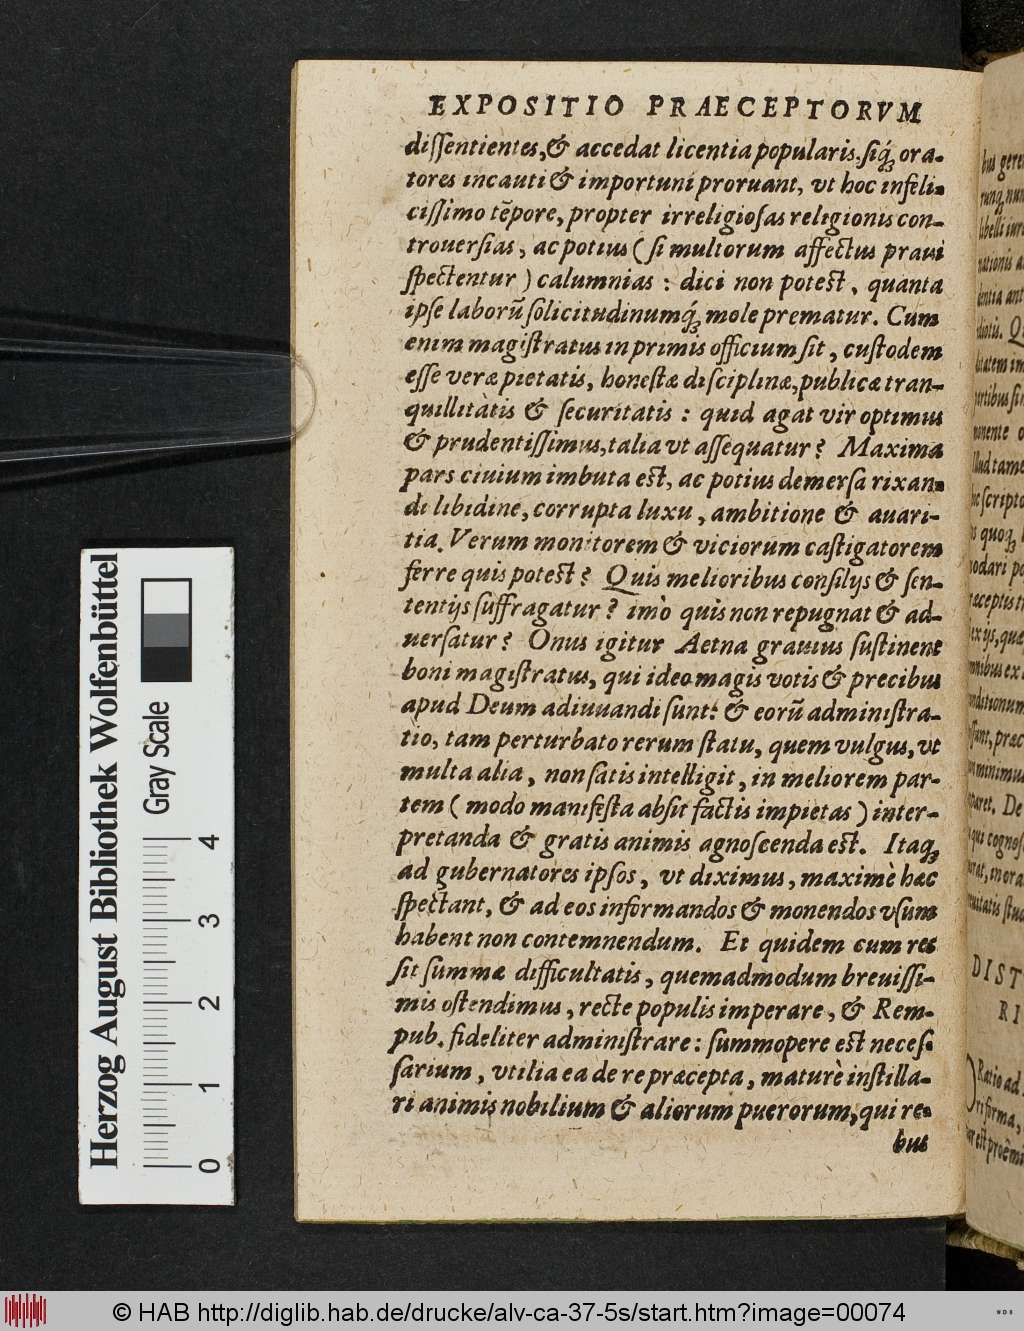 EXPOSITIO PRAECEPTORVM
dissentientes, & accedat licentia popularis, siq́ꝫ ora-
tores incauti & importuni proruant, vt hoc infeli-
cissimo tẽpore, propter irreligiosas religionis con-
trouersias, ac potius ( si multorum affectus praui
spectentur ) calumnias : dici non potest, quanta
ipse laborũ solicitudinumq́ꝫ mole prematur. Cum
enim magistratus in primis officium sit, custodem
esse veræ pietatis, honestæ disciplinæ, publicæ tran-
quillitàtis & securitatis : quid agat vir optimus
& prudentissimus, talia vt assequatur? Maxima
pars ciuium imbuta est, ac potius demersa rixan-
di libidine, corrupta luxu, ambitione & auari-
tia. Verum monitorem & viciorum castigatorem
ferre quis potest? Quis melioribus consilijs & sen-
tentijs suffragatur? imò quis non repugnat & ad-
uersatur? Onus igitur Aetna grauius sustinent
boni magistratus, qui ideo magis votis & precibus
apud Deum adiuuandi sunt: & eorũ administra-
tio, tam perturbato rerum statu, quem vulgus, vt
multa alia, non satis intelligit, in meliorem par-
tem ( modo manifesta absit factis impietas ) inter-
pretanda & gratis animis agnoscenda est. Itaqꝫ
ad gubernatores ipsos, vt diximus, maximè hæc
spectant, & ad eos informandos & monendos vsum
habent non contemnendum. Et quidem cum res
sit summæ difficultatis, quemadmodum breuissi-
mis ostendimus, recte populis imperare, & Rem-
pub. fideliter administrare: summopere est neces-
sarium, vtilia ea de re præcepta, maturè instilla-
ri animis nobilium & aliorum puerorum, qui re-
bus
Herzog August Bibliothek Wolfenbüttel
Gray Scale
0 1 2 3 4
DIST
RI
© HAB http://diglib.hab.de/drucke/alv-ca-37-5s/start.htm?image=00074